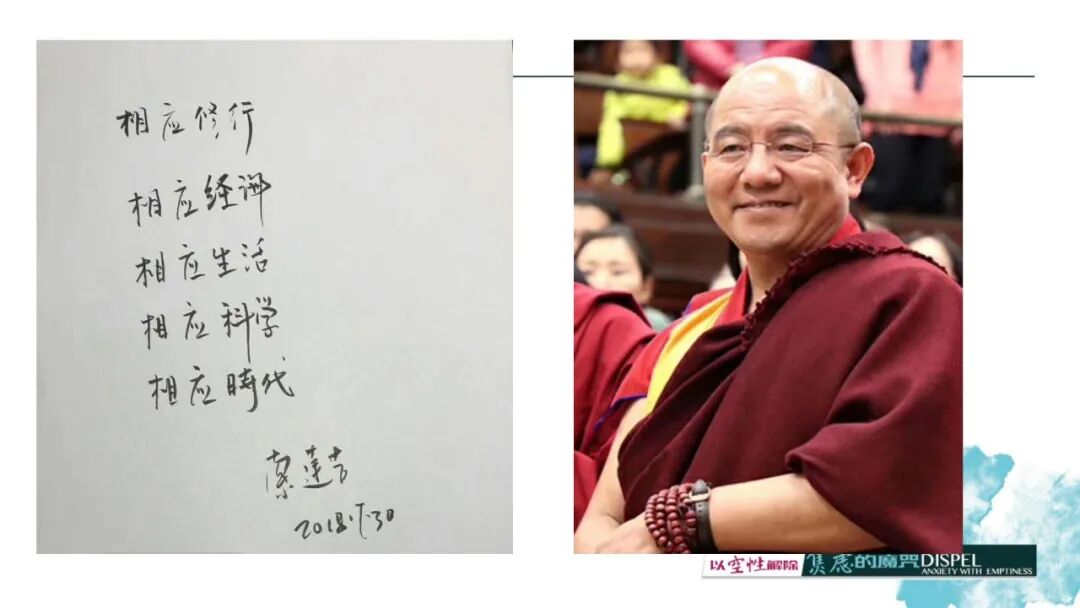 相应修行
相应经
相应生活
相应科学
相应時代
索達吉
以空性解除 焦虑的魔咒DISPEL
ANXIETY WITH EMPTINESS